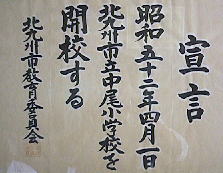 宣言
昭和五十二年四月一日
北九州市立中尾小学校を
開校する
北九州市教育委員会